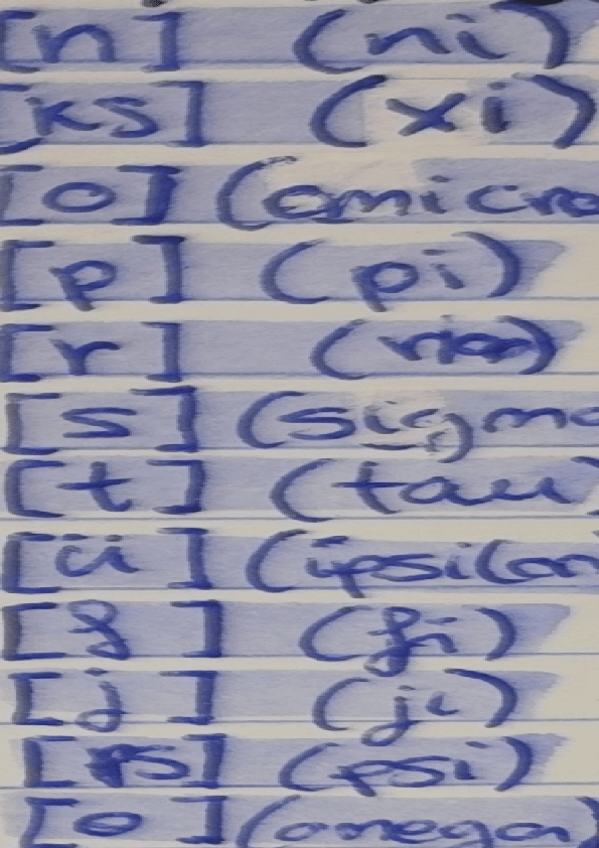 [n] (ni)
[ks] (xi)
[o] (omicro
[p] (pi)
[r]
[s] (sigma
[t] (tau)
[ü] (ipsilon
[f] (fi)
[j] (ji)
[ps] (psi)
[o] (omega)